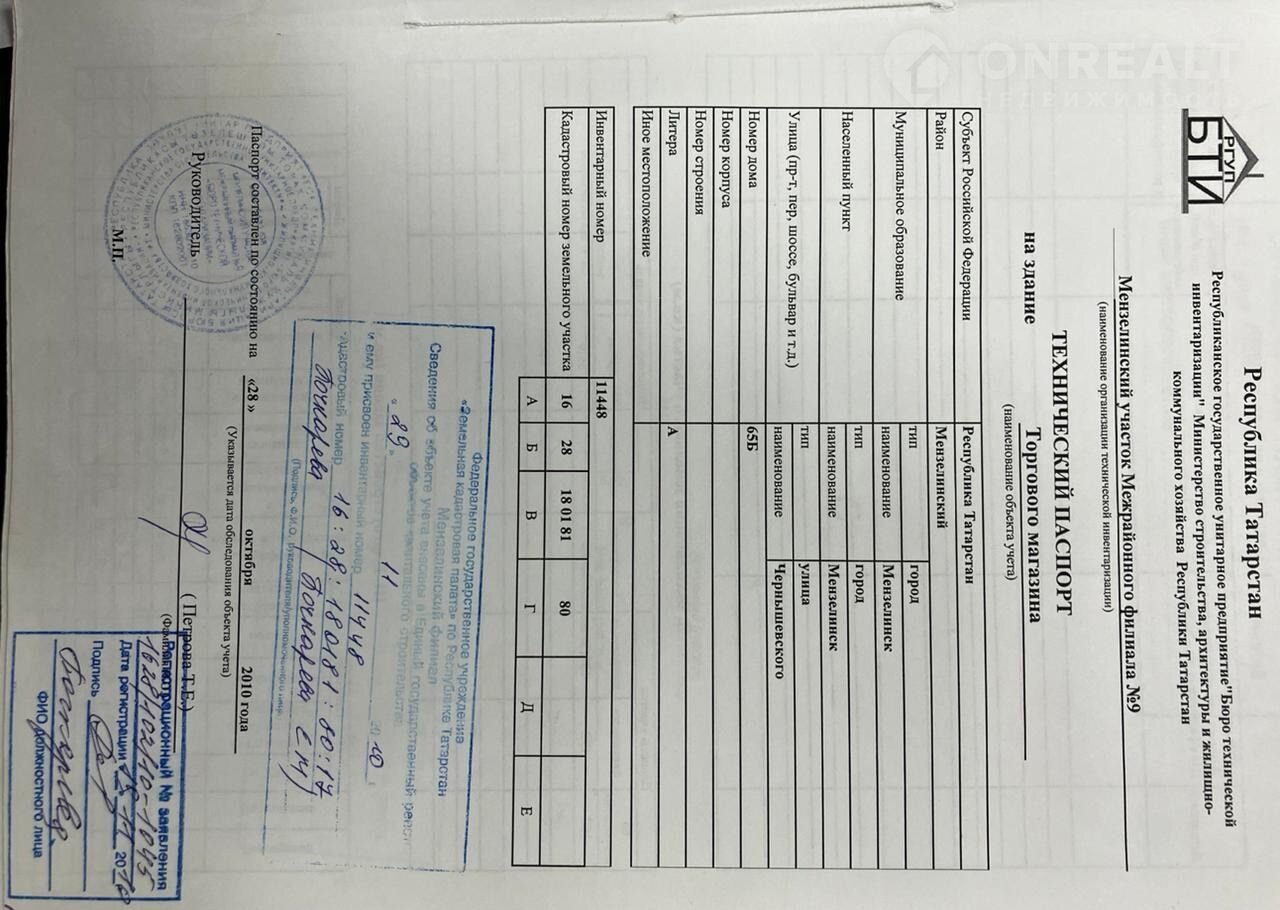 ONREALT
НЕДВИЖИМОСТЬ
РГУП
БТИ
Республика Татарстан
Республиканское государственное унитарное предприятие"Бюро технической
инвентаризации" Министерство строительства, архитектуры и жилищно-
коммунального хозяйства Республики Татарстан
Мензелинский участок Межрайонного филиала №9
(наименование организации технической инвентаризации)
ТЕХНИЧЕСКИЙ ПАСПОРТ
на здание Торгового магазина
(наименование объекта учета)
Субъект Российской Федерации Республика Татарстан
Район Мензелинский
Муниципальное образование тип город
наименование Мензелинск
Населенный пункт тип город
наименование Мензелинск
Улица (пр-т, пер, шоссе, бульвар и т.д.) тип улица
наименование Чернышевского
Номер дома 65Б
Номер корпуса
Номер строения
Литера А
Иное местоположение
Инвентарный номер 11448
Кадастровый номер земельного участка 16 28 18 01 81 80
А Б В Г Д Е
Федеральное государственное учреждение
«Земельная кадастровая палата» по Республике Татарстан
Мензелинский филиал
Сведения об объекте учета внесены в Единый государственный реестр
объектов капитального строительства
«29» 11 2010
и ему присвоен инвентарный номер 11448
кадастровый номер 16:28:180181:80:17
(Подпись, Ф.И.О. руководителя/уполномоченного лица)
Паспорт составлен по состоянию на «28» октября 2010 года
(Указывается дата обследования объекта учета)
Руководитель ( Петрова Т.Е.)
М.П.
Регистрационный № заявления
1628/102/10-1045
Дата регистрации 11 2010
Подпись
ФИО должностного лица